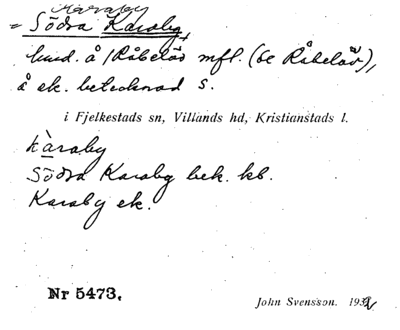 Karaby
= Södra Karaby,
hmd. å /Råbelöv mfl. (se Råbelöv),
å ek. betecknad S.
i Fjelkestads sn, Villands hd, Kristianstads l.
kàraby
Södra Karaby bek. kb.
Karaby ek.
Nr 5473.
John Svensson. 193